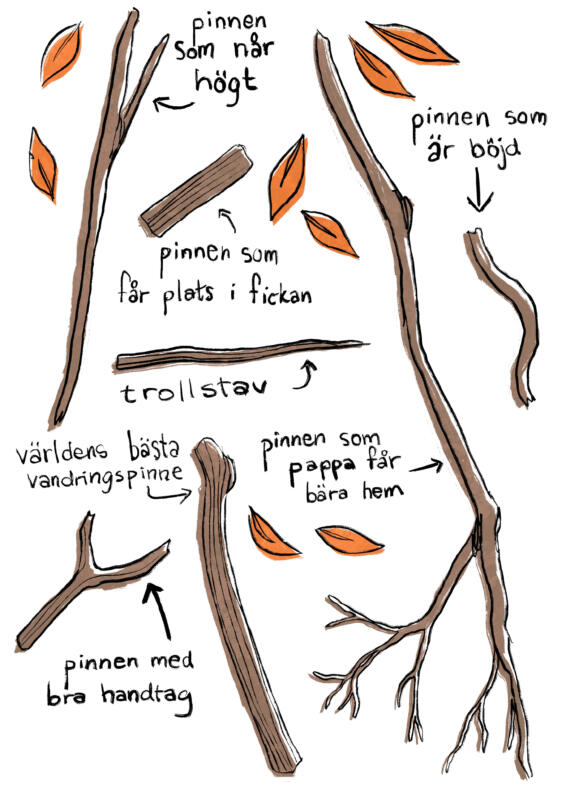 pinnen
som når
högt
pinnen som
är böjd
pinnen som
får plats i fickan
trollstav
världens bästa
vandringspinne
pinnen som
pappa får
bära hem
pinnen med
bra handtag